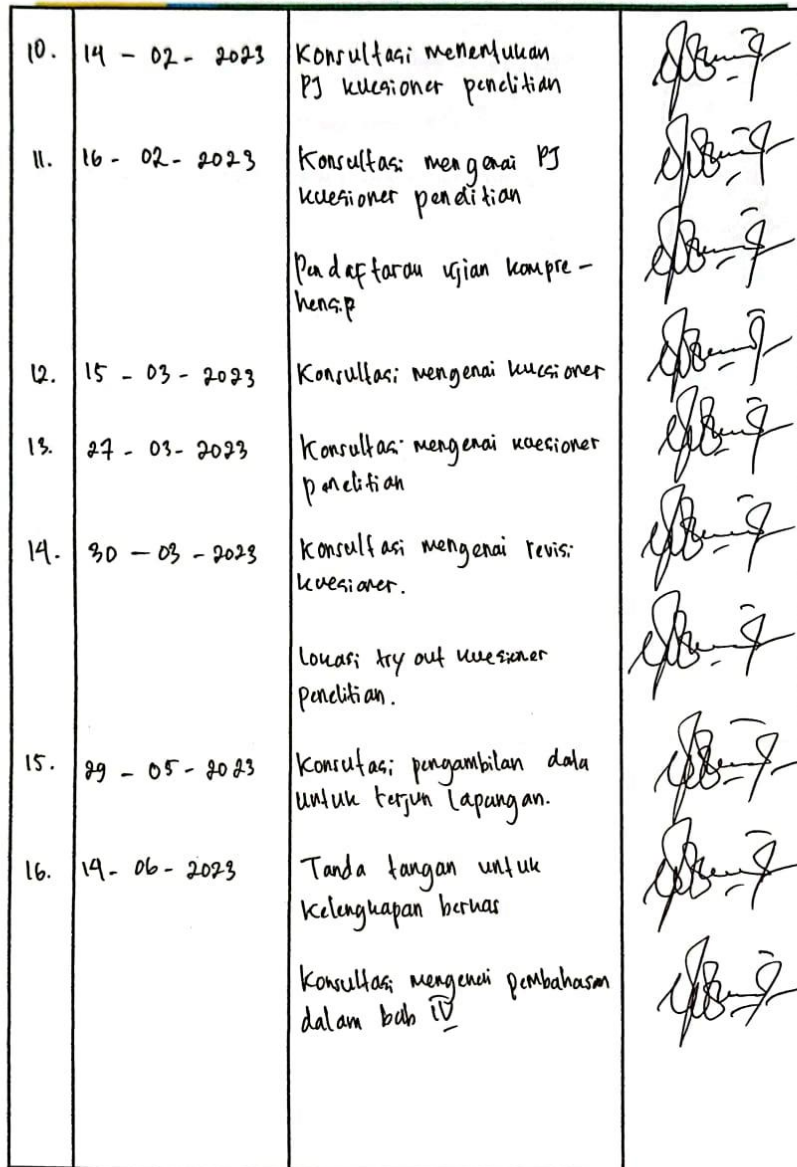 10. 14 - 02 - 2023 Konsultasi menentukan
PJ kuesioner penelitian
11. 16 - 02 - 2023 Konsultasi mengenai PJ
kuesioner penelitian
Pendaftaran ujian kompre -
hensip
12. 15 - 03 - 2023 Konsultasi mengenai kuesioner
13. 27 - 03 - 2023 Konsultasi mengenai kuesioner
penelitian
14. 30 - 03 - 2023 Konsultasi mengenai revisi
kuesioner.
Lokasi try out kuesioner
penelitian.
15. 29 - 05 - 2023 Konsutasi pengambilan data
untuk terjun lapangan.
16. 14 - 06 - 2023 Tanda tangan untuk
kelengkapan berkas
Konsultasi mengenai pembahasan
dalam bab IV